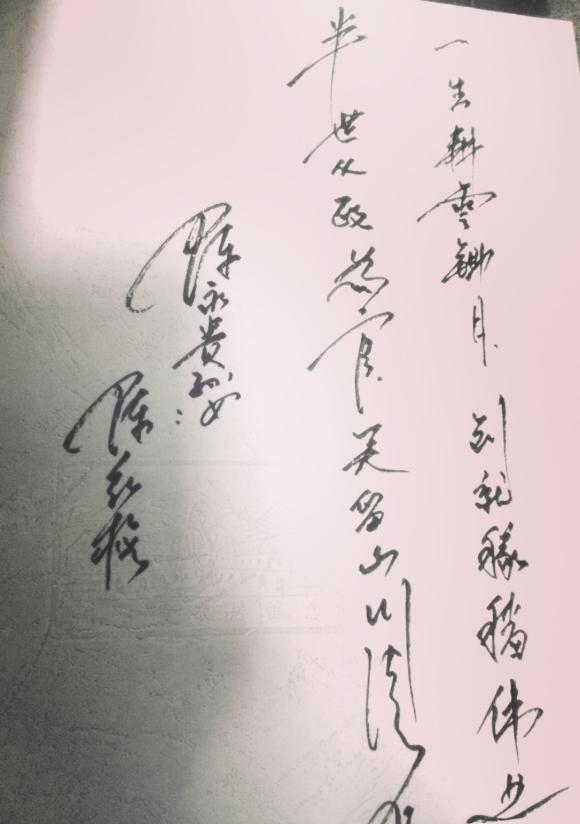 一生耕云锄月 创乳稼穑伟业
半世从政为官 笑留山川清
陈永贵孙女:
陈红梅